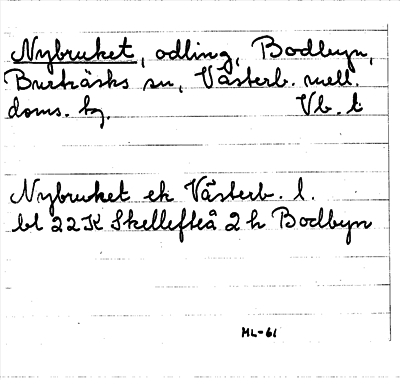 Nybruket, odling, Bodbyn,
Burträsks sn, Västerb. mell.
doms. hg. Vb. l
Nybruket ek Västerb. l.
bl 22K Skellefteå 2 h Bodbyn
ML-61